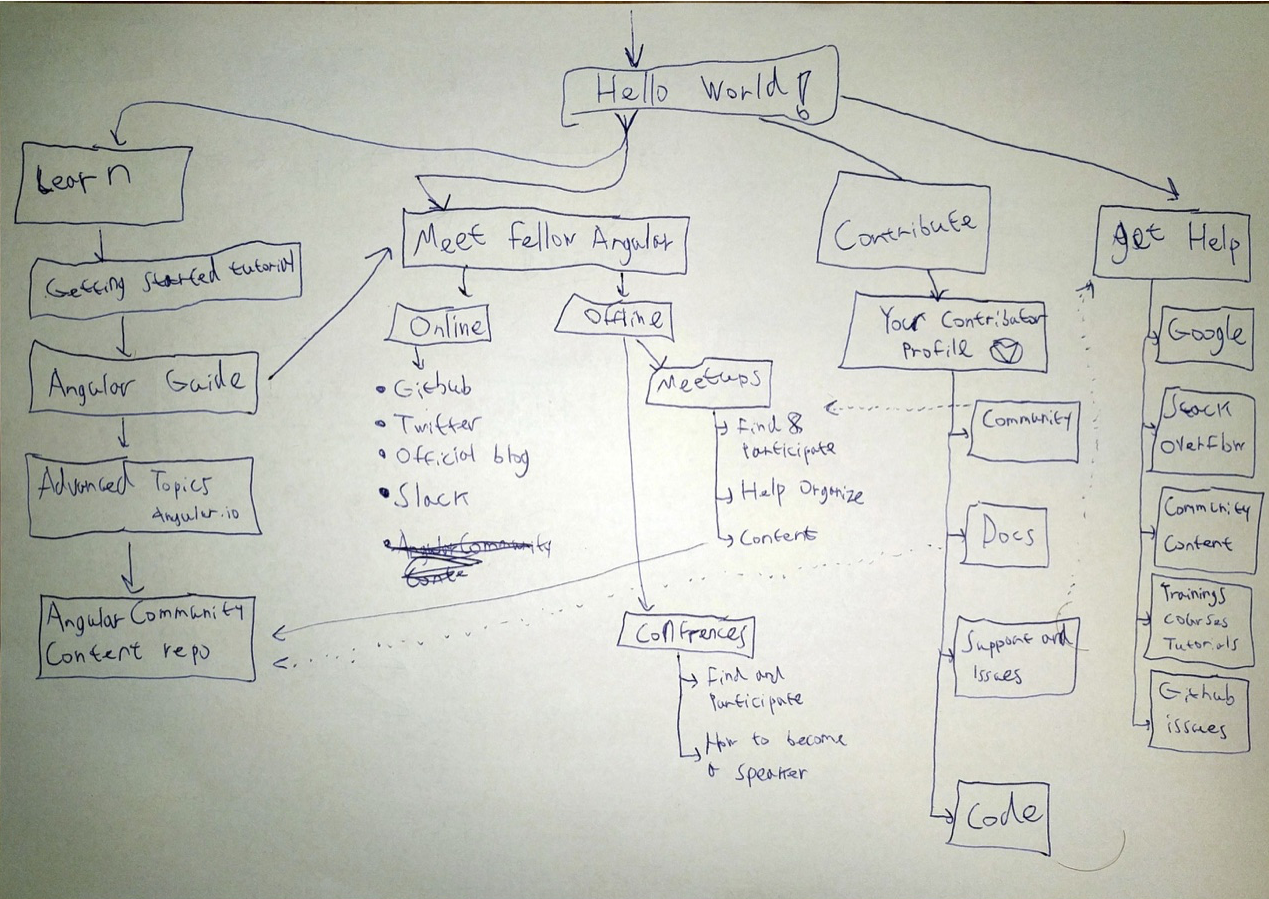 Hello World!
Learn
Getting started tutorial
Angular Guide
Advanced Topics
Angular.io
Angular Community
Content repo
Meet Fellow Angular
Online
• Github
• Twitter
• Official blog
• Slack
Offline
Meetups
Find &
Participate
Help Organize
Content
Confrences
Find and
Participate
How to become
a speaker
Contribute
Your Contributor
Profile
Community
Docs
Support and
Issues
Code
get Help
Google
Stack
Overflow
Community
Content
Trainings
Courses
Tutorials
Github
issues